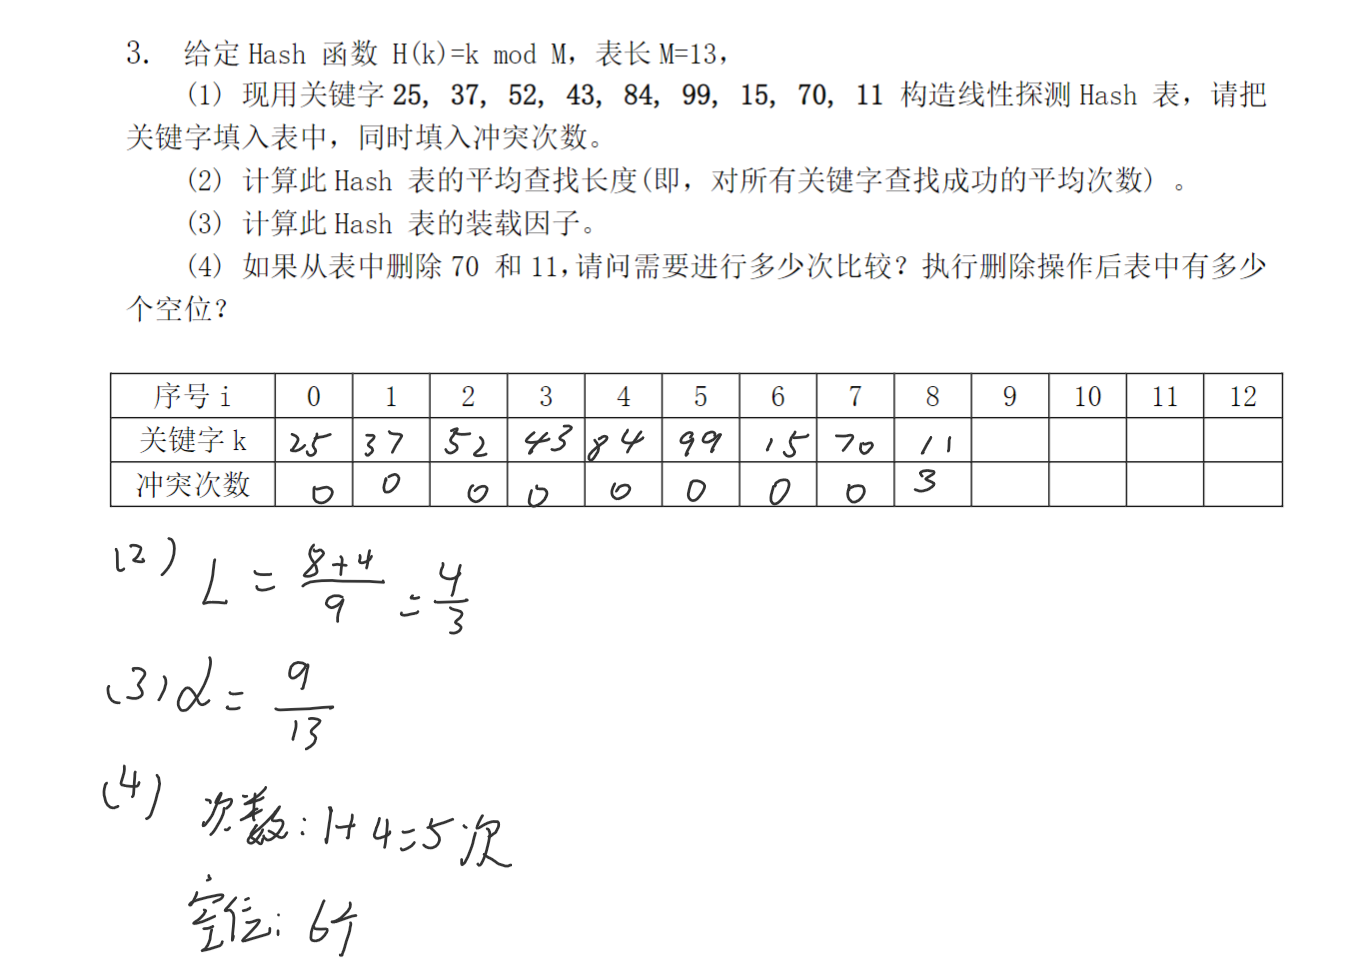 3. 给定 Hash 函数 H(k)=k mod M，表长 M=13，
(1) 现用关键字 25, 37, 52, 43, 84, 99, 15, 70, 11 构造线性探测 Hash 表，请把
关键字填入表中，同时填入冲突次数。
(2) 计算此 Hash 表的平均查找长度(即，对所有关键字查找成功的平均次数) 。
(3) 计算此 Hash 表的装载因子。
(4) 如果从表中删除 70 和 11,请问需要进行多少次比较？执行删除操作后表中有多少
个空位？
序号 i 0 1 2 3 4 5 6 7 8 9 10 11 12
关键字 k 25 37 52 43 84 99 15 70 11
冲突次数 0 0 0 0 0 0 0 0 3
(2) L = (8+4)/9 = 4/3
(3) α = 9/13
(4) 次数: 1+4=5次
空位: 6个